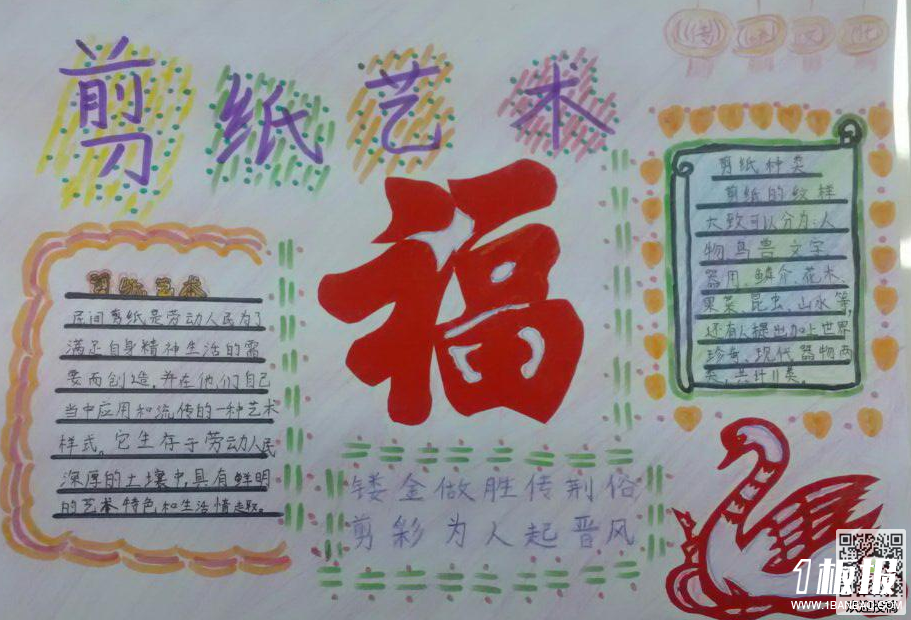 剪纸艺术
传统文化
福
剪纸艺术
民间剪纸是劳动人民为了
满足自身精神生活的需
要而创造,并在他们自己
当中应用和流传的一种艺术
样式。它生存于劳动人民
深厚的土壤中,具有鲜明
的艺术特色和生活情趣。
剪纸种类
剪纸的纹样
大致可以分为:人
物、鸟兽、文字、
器用、鳞介、花木、
果菜、昆虫、山水等,
还有人提出加上世界
珍奇、现代器物两
类,共计11类。
镂金做胜传荆俗
剪彩为人起晋风
1板报
WWW.1BANBAO.COM
欢迎投稿